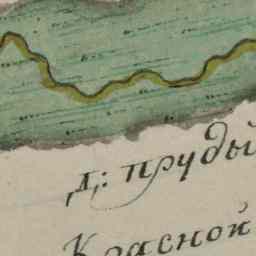 ,д,: пруды
Красной